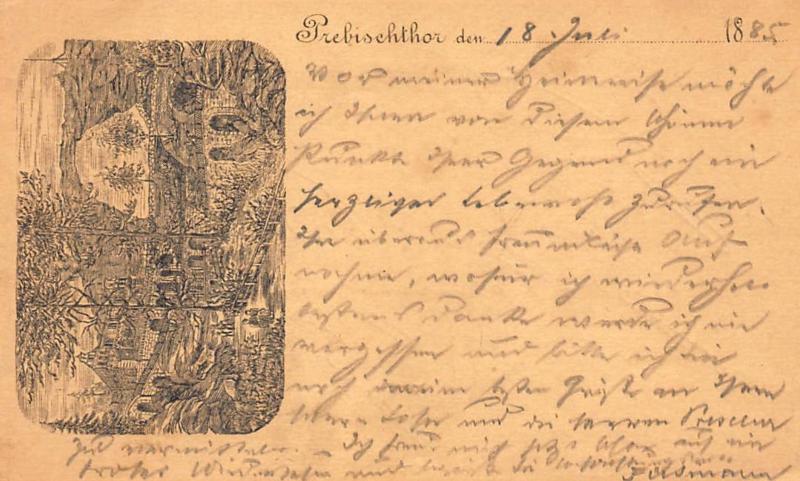 Prebischthor den 18. Juli 1885
Vor meiner Heimreise möchte
ich Ihnen von diesem schönen
Punkte Ihrer Gegend noch ein
herzliches Lebewohl zurufen.
Ihre überaus freundliche Auf-
nahme, wofür ich wiederholt
bestens danke werde ich nie
vergessen und bitte ich Sie
noch meine besten Grüße an Ihren
und die Herren
zu vermitteln. Ich freue mich jetzt schon auf ein
frohes Wiedersehen und